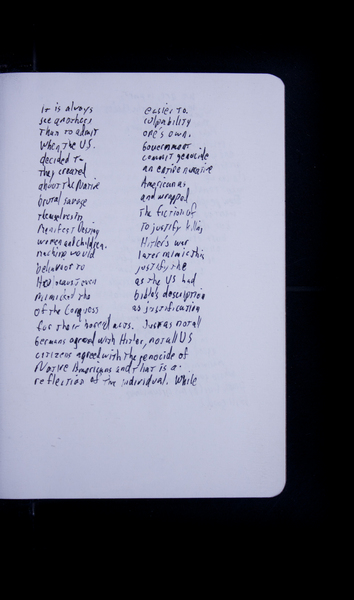 It is always easier to
see anothers culpability
than to admit one's own.
When the U.S. Government
decided to commit genocide
they created an entire narrative
about the Native Americans
brutal savage and wrapped
themselves in the fiction of
Manifest Destiny to justify killing
women and children. Hitler's war
machine would later mimic this
behavior to justify the
as the US had
mimicked the bible's description
of the Conquest as justification
for their horrid acts. Just as not all
Germans agreed with Hitler, not all US
citizens agreed with the genocide of
Native Americans and that is a
reflection of the individual. While